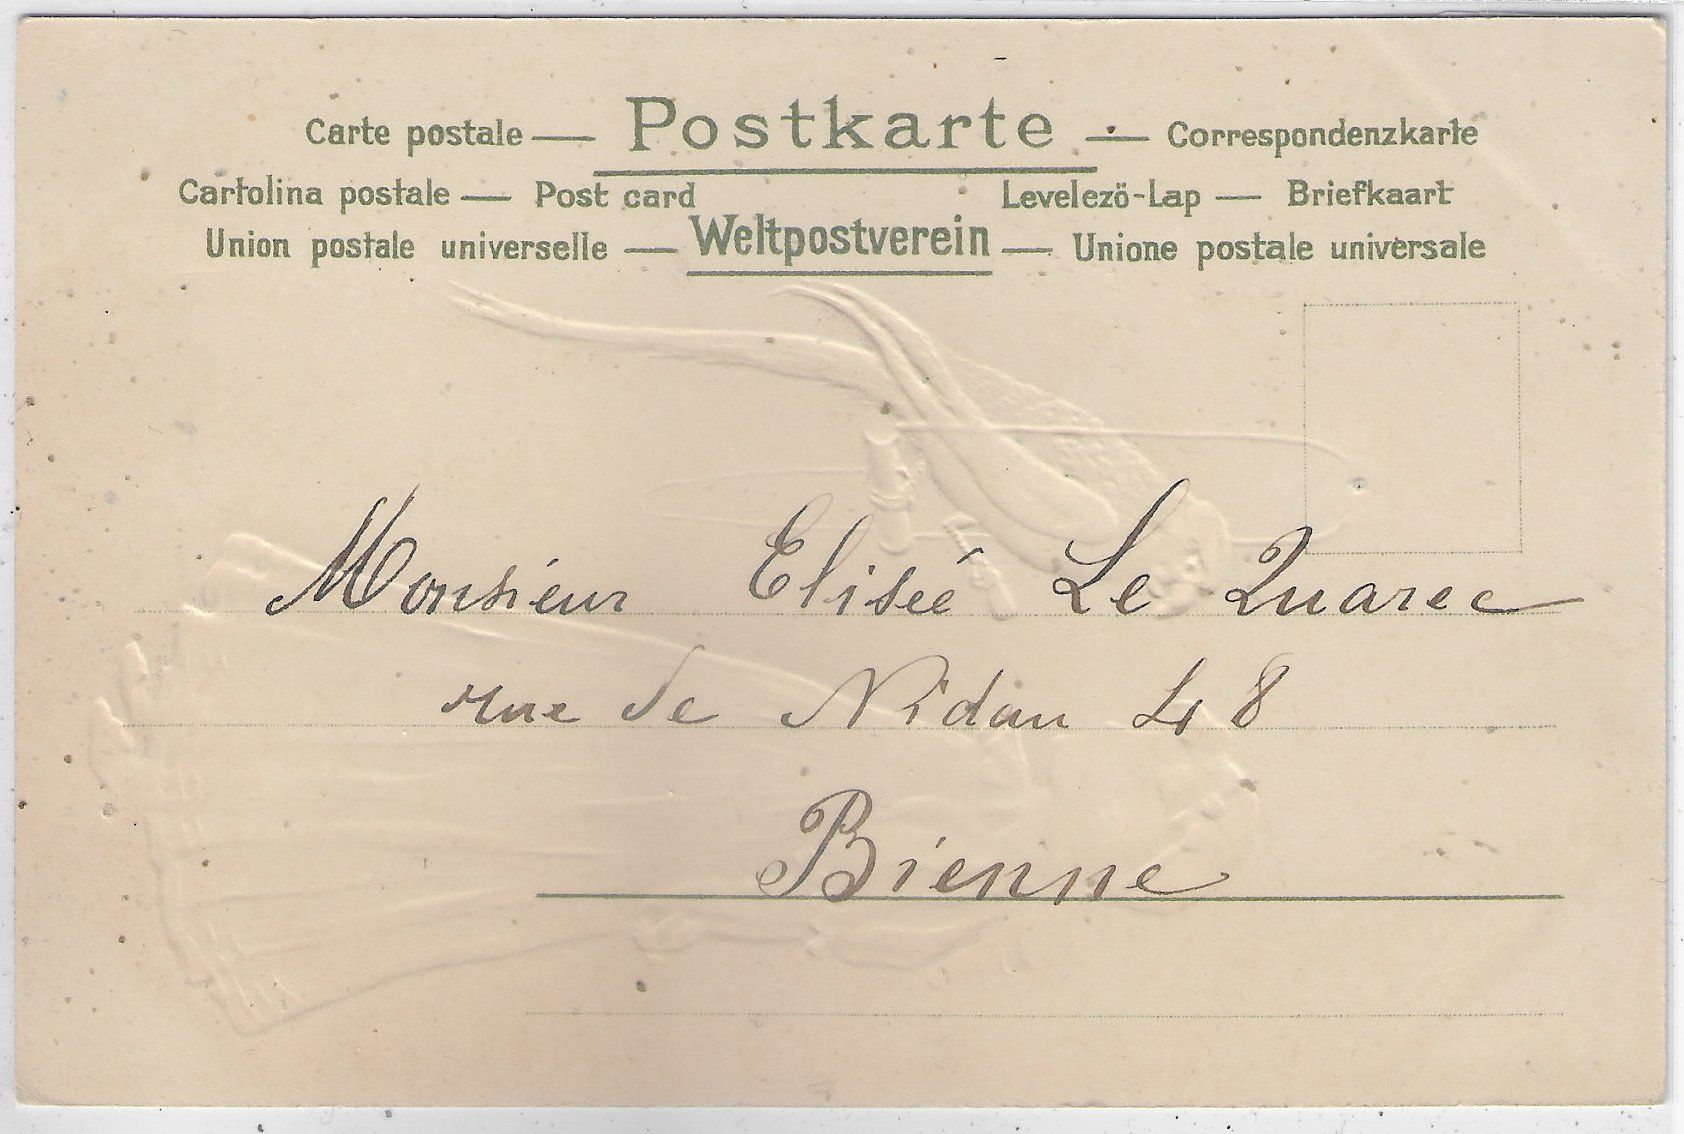 Carte postale — Postkarte — Correspondenzkarte
Cartolina postale — Post card Levelezö-Lap — Briefkaart
Union postale universelle — Weltpostverein — Unione postale universale
Monsieur Elisée Le Quarec
rue de Nidau 48
Bienne